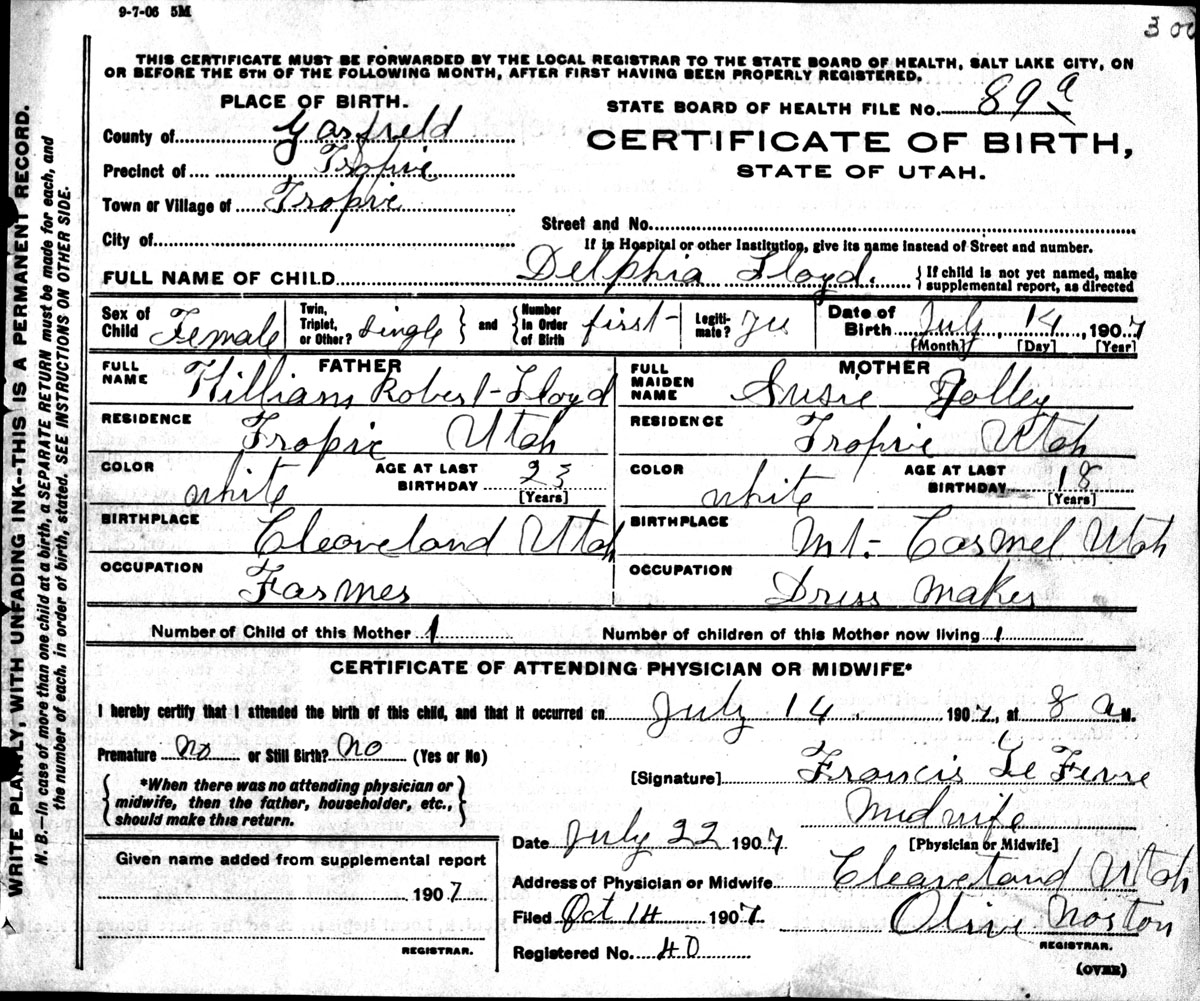 9-7-06 5M
3 00
THIS CERTIFICATE MUST BE FORWARDED BY THE LOCAL REGISTRAR TO THE STATE BOARD OF HEALTH, SALT LAKE CITY, ON
OR BEFORE THE 5TH OF THE FOLLOWING MONTH, AFTER FIRST HAVING BEEN PROPERLY REGISTERED.
PLACE OF BIRTH.
STATE BOARD OF HEALTH FILE No. 89 a
County of Garfield
CERTIFICATE OF BIRTH,
Precinct of Tropic
STATE OF UTAH.
Town or Village of Tropic
Street and No.
City of
If in Hospital or other Institution, give its name instead of Street and number.
FULL NAME OF CHILD Delphia Lloyd. {If child is not yet named, make
supplemental report, as directed
Sex of Child Female Twin, Triplet, or Other? Single } and { Number in Order of Birth first Legiti-mate? yes Date of Birth July 14, 1907
[Month] [Day] [Year]
FATHER
FULL NAME William Robert Lloyd
MOTHER
FULL MAIDEN NAME Susie Jolley
RESIDENCE Tropic Utah
RESIDENCE Tropic Utah
COLOR white AGE AT LAST BIRTHDAY 23 [Years]
COLOR white AGE AT LAST BIRTHDAY 18 [Years]
BIRTHPLACE Cleaveland Utah
BIRTHPLACE Mt. Carmel Utah
OCCUPATION Farmer
OCCUPATION Driss Maker
Number of Child of this Mother 1
Number of children of this Mother now living 1
CERTIFICATE OF ATTENDING PHYSICIAN OR MIDWIFE*
I hereby certify that I attended the birth of this child, and that it occurred on July 14. 1907, at 8 a M.
Premature No or Still Birth? No (Yes or No)
[Signature] Francis Le Fevre
{ *When there was no attending physician or
midwife, then the father, householder, etc.,
should make this return. }
Midwife
[Physician or Midwife]
Date July 22 1907
Given name added from supplemental report
1907
REGISTRAR.
Address of Physician or Midwife Cleaveland Utah
Filed Oct 14 1907 Olive Norton
REGISTRAR.
Registered No. 40
(OVER)
WRITE PLAINLY, WITH UNFADING INK--THIS IS A PERMANENT RECORD.
N. B.—In case of more than one child at a birth, a SEPARATE RETURN must be made for each, and
the number of each, in order of birth, stated. SEE INSTRUCTIONS ON OTHER SIDE.